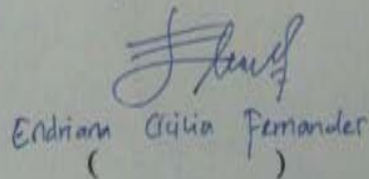 Endriana Cicilia Fernandez
( )